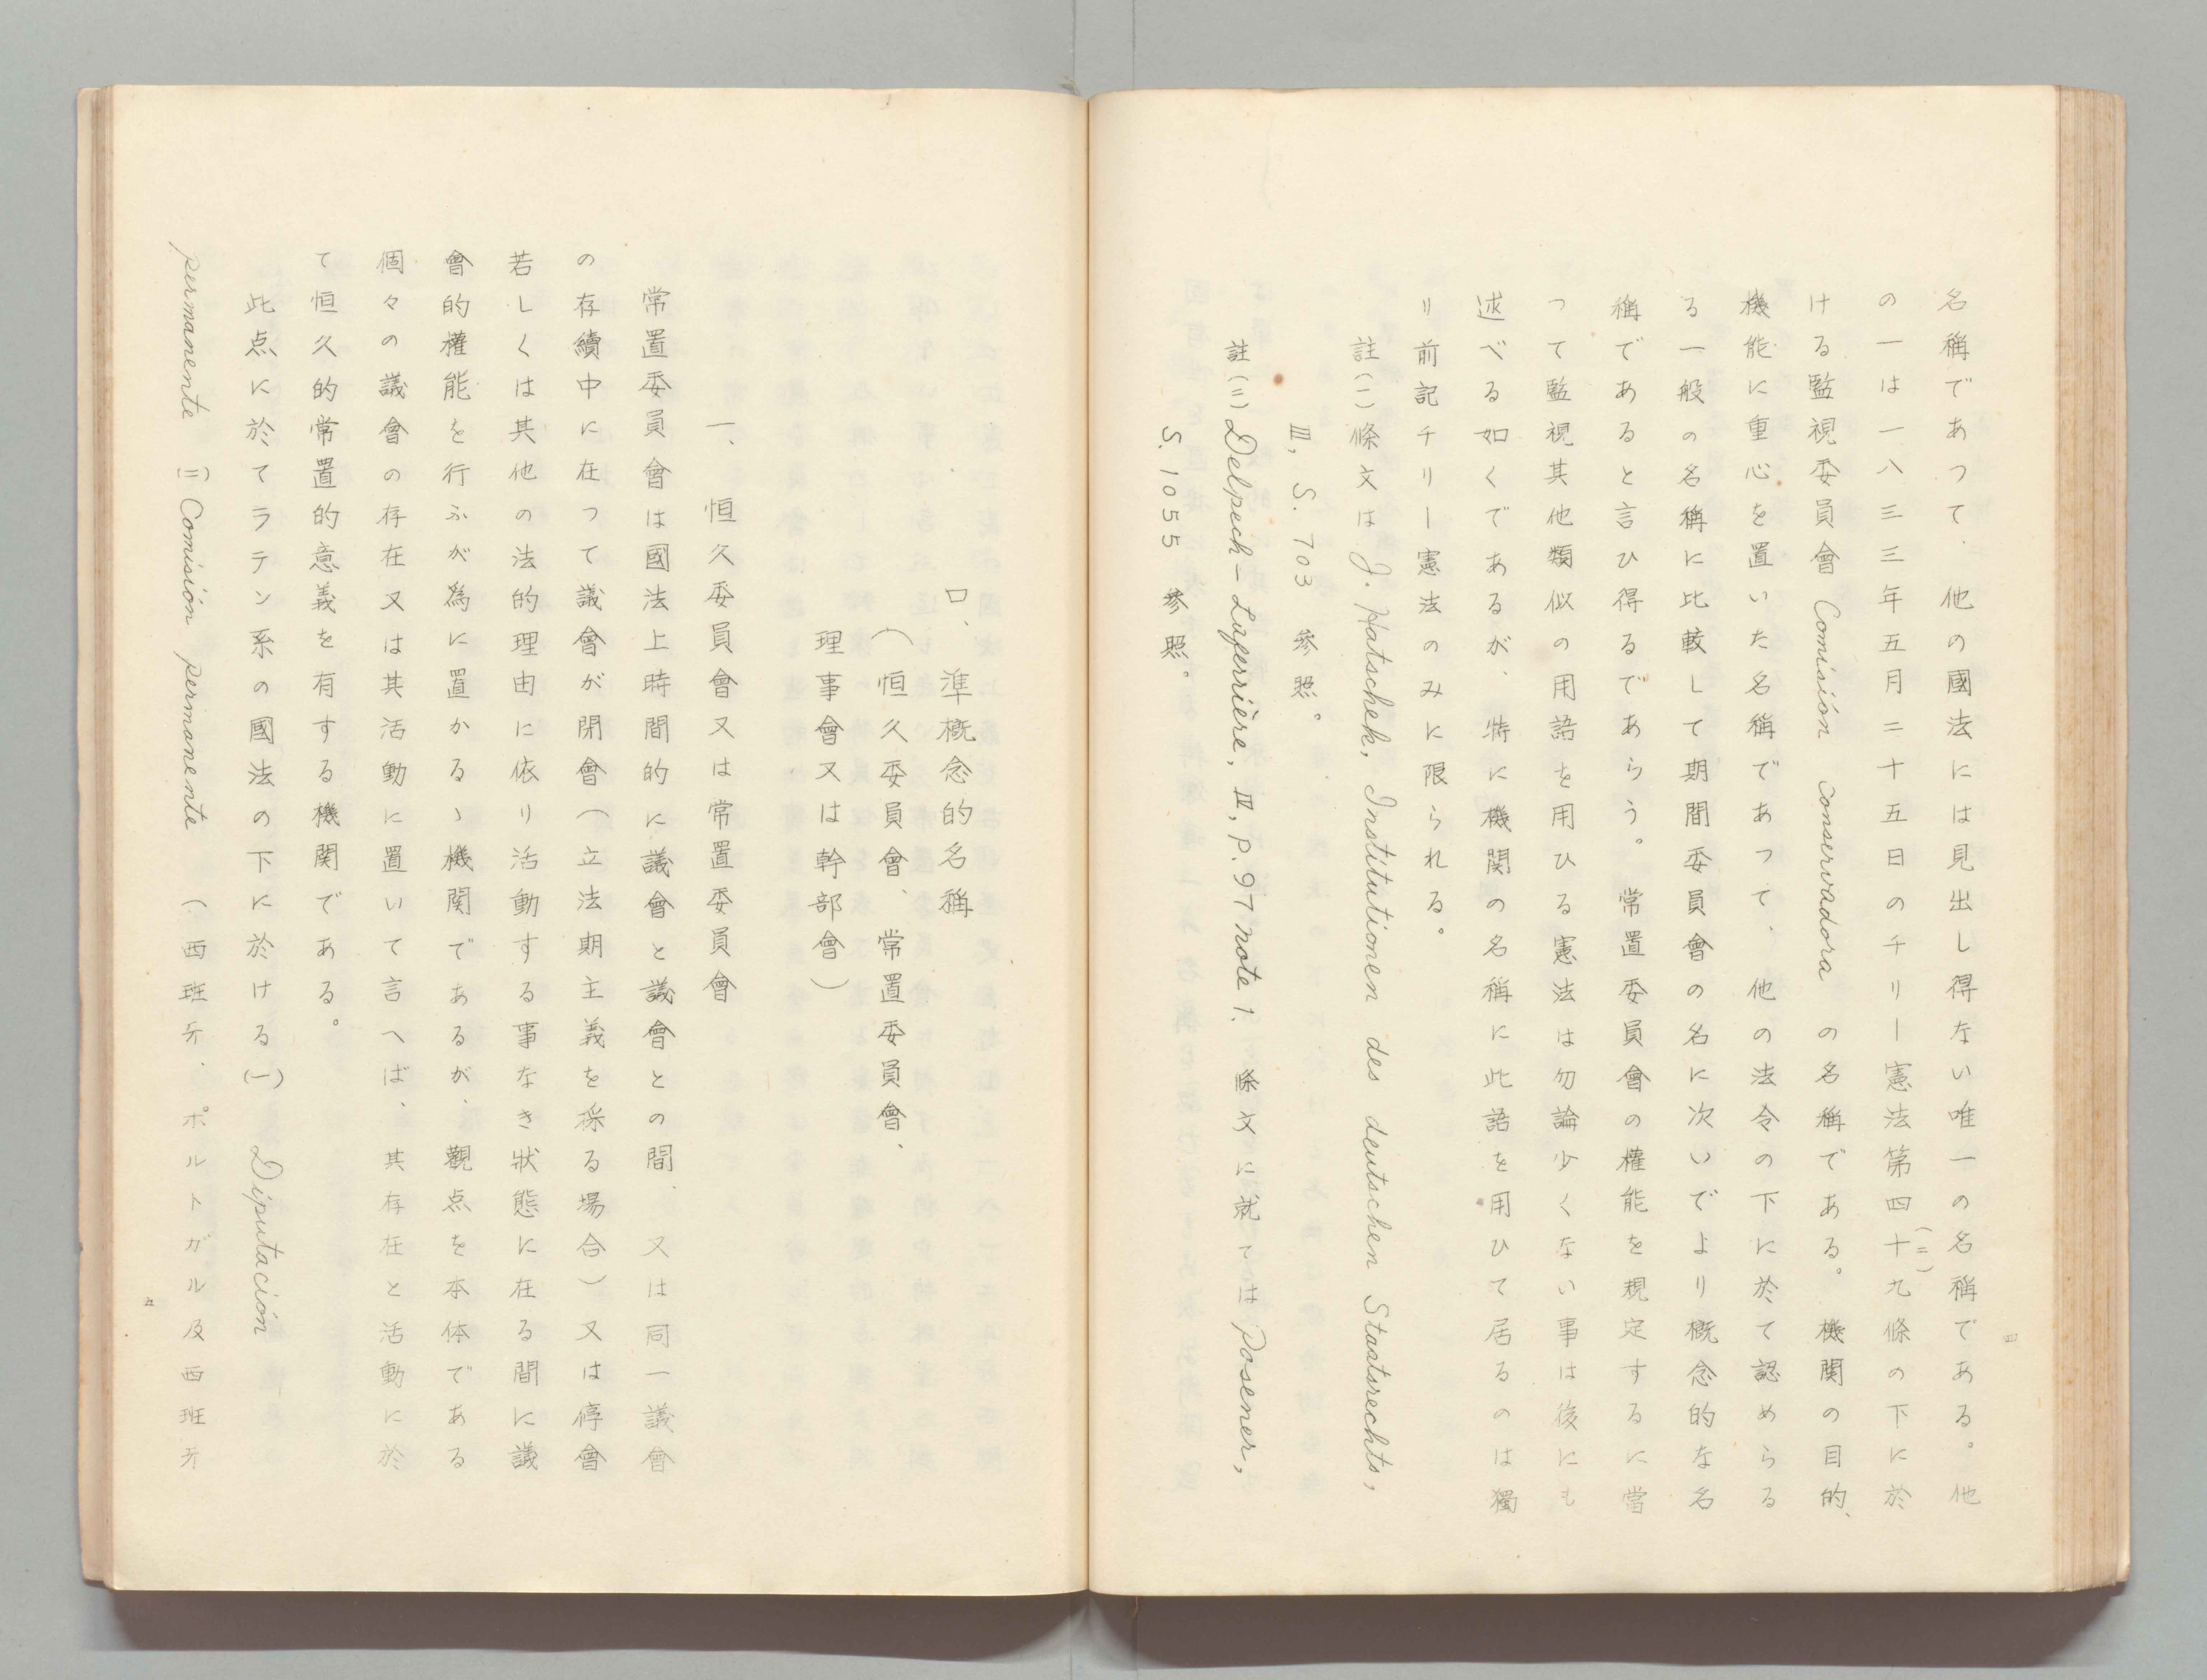 四
名稱であつて、他の國法には見出し得ない唯一の名稱である。他
の一は一八三三年五月二十五日のチリー憲法第四十九條の下に於
(二)
ける監視委員會 Comisión conservadora の名稱である。機關の目的、
機能に重心を置いた名稱であつて、他の法令の下に於て認めらる
る一般の名稱に比較して期間委員會の名に次いでより概念的な名
稱であると言ひ得るであらう。常置委員會の權能を規定するに當
つて監視其他類似の用語を用ひる憲法は勿論少くない事は後にも
述べる如くであるが、特に機関の名稱に此語を用ひて居るのは獨
り前記チリー憲法のみに限られる。
註(一)條文は J. Hatschek, Institutionen des deutschen Staatsrechts,
III, S. 703 參照。
註(二)Delpech-Laferrière, IV, p. 97 note 1. 條文に就ては Posener,
S. 1055 參照。
ロ、準概念的名稱
(恒久委員會、常置委員會、
理事會又は幹部會)
一、恒久委員會又は常置委員會
常置委員會は國法上時間的に議會と議會との間、又は同一議會
の存續中に在つて議會が閉會(立法期主義を採る場合)又は停會
若しくは其他の法的理由に依り活動する事なき狀態に在る間に議
會的權能を行ふが爲に置かるゝ機関であるが、觀点を本体である
個々の議會の存在又は其活動に置いて言へば、其存在と活動に於
て恒久的常置的意義を有する機関である。
此点に於てラテン系の國法の下に於ける(一) Diputación
permanente (二) Comisión permanente (西班牙、ポルトガル及西班牙
五